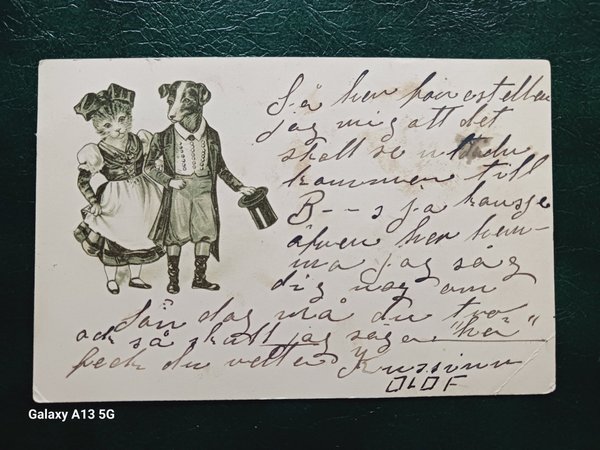 Så her förestellen
jag mig att det
skall se ut då du
kommer till
B---s ja kansje
äfven her hem-
ma jag såg
dig nog om
Sön dag må du tro
ock så skall jag säga "her"
feck du vetta Kussinn
OLOF
Galaxy A13 5G